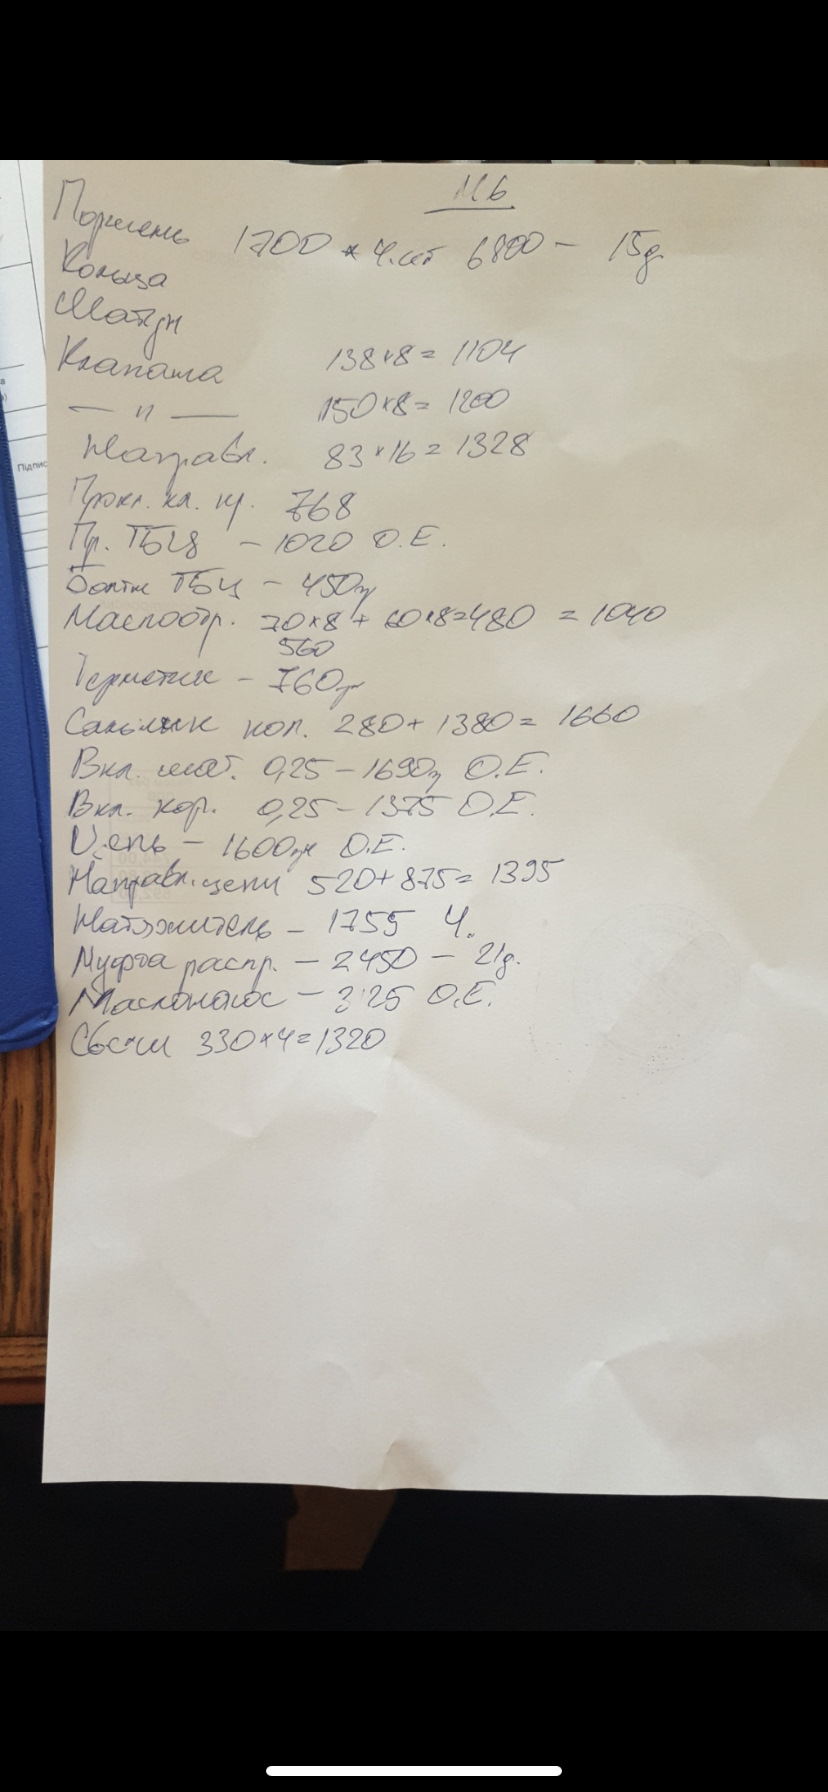 М6
Поршень 1700 * 4.сет 6800 - 15д.
Кольца
Шатун
Клапана 138*8= 1104
— " — 150*8= 1200
Направл. 83*16= 1328
Прокл. кл. кр. 768
Пр. ГБЦ - 1020 O.E.
Болты ГБЦ - 450гр
Маслоотр. 70*8 + 60*8=480 = 1040
560
Герметик - 760гр
Сальник кол. 280+1380= 1660
Вкл. шат. 0,25-1690г O.E.
Вкл. кор. 0,25-1375 O.E.
Цепь - 1600грн O.E.
Направл. цепи 520+875= 1395
Натяжитель - 1755 Ч.
Муфта распр. - 2450 - 21д.
Маслонасос - O.E.
Свечи 330*4=1320
Підпис